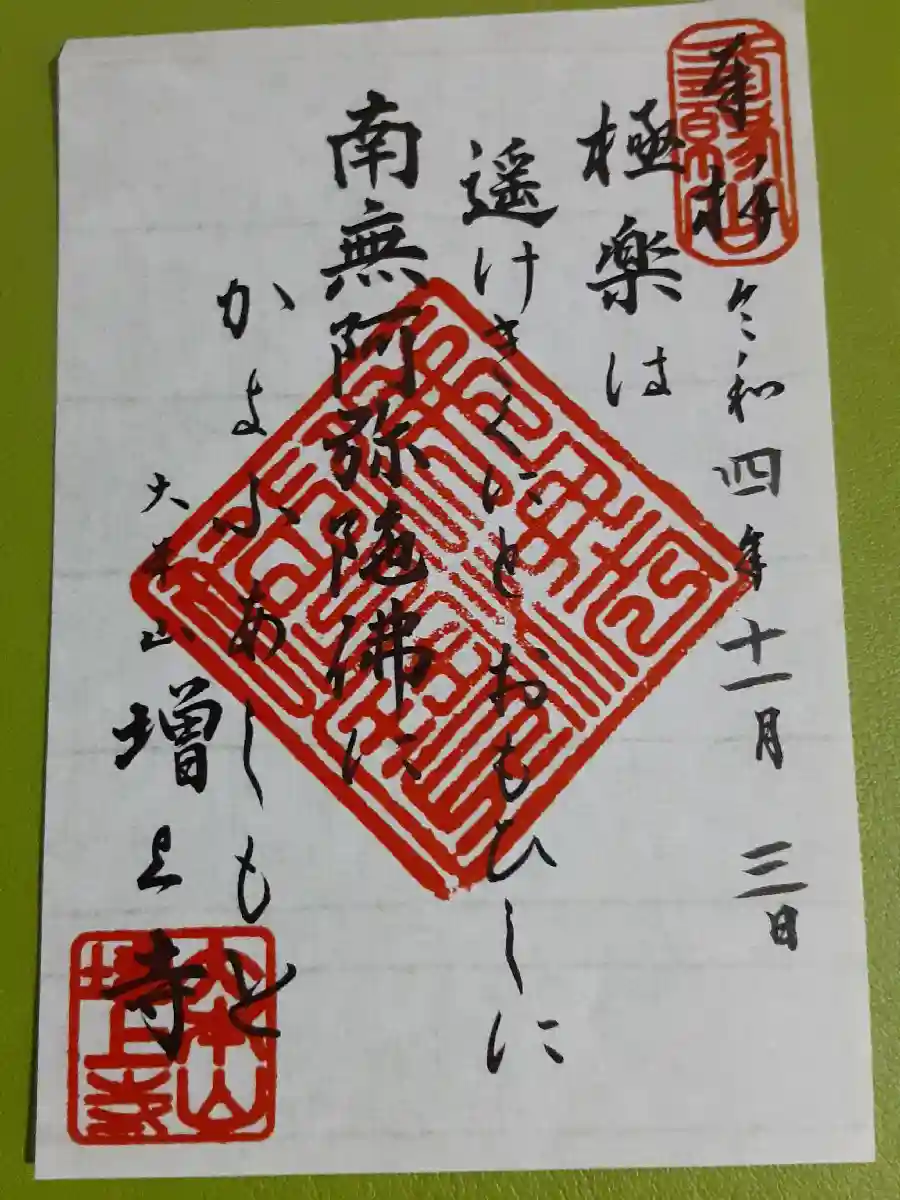 奉拝
令和四年十一月三日
極楽は
遥けきくにとおもひしに
南無阿弥陀佛に
かよふあしもと
大本山
増上寺
大本山
増上寺